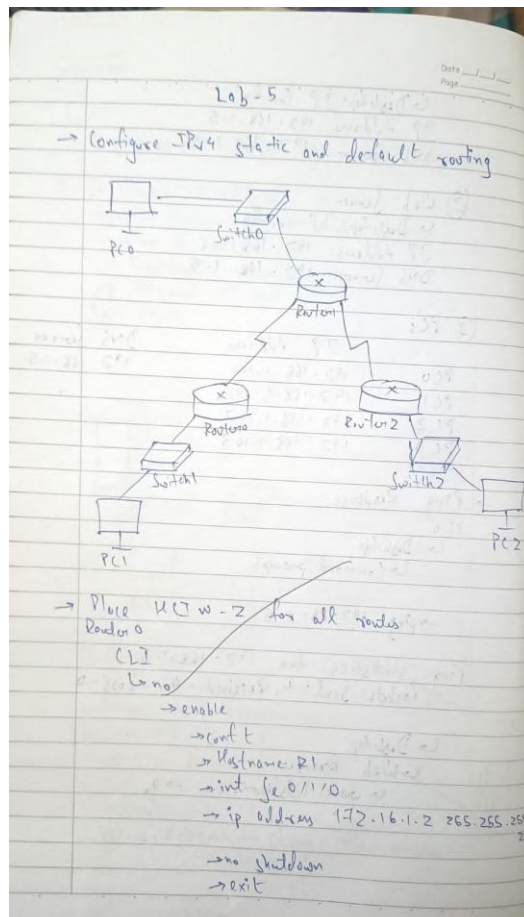 Date
Page
Lab-5
→ Configure IPv4 static and default routing
PC0
Switch0
Router1
Router0
Router2
Switch1
Switch2
PC1
PC2
→ Place for all routes
Router 0
CLI
↳ no
→ enable
→ conf t
→ Hostname R1
→ int se 0/1/0
→ ip address 172.16.1.2
→ no shutdown
→ exit